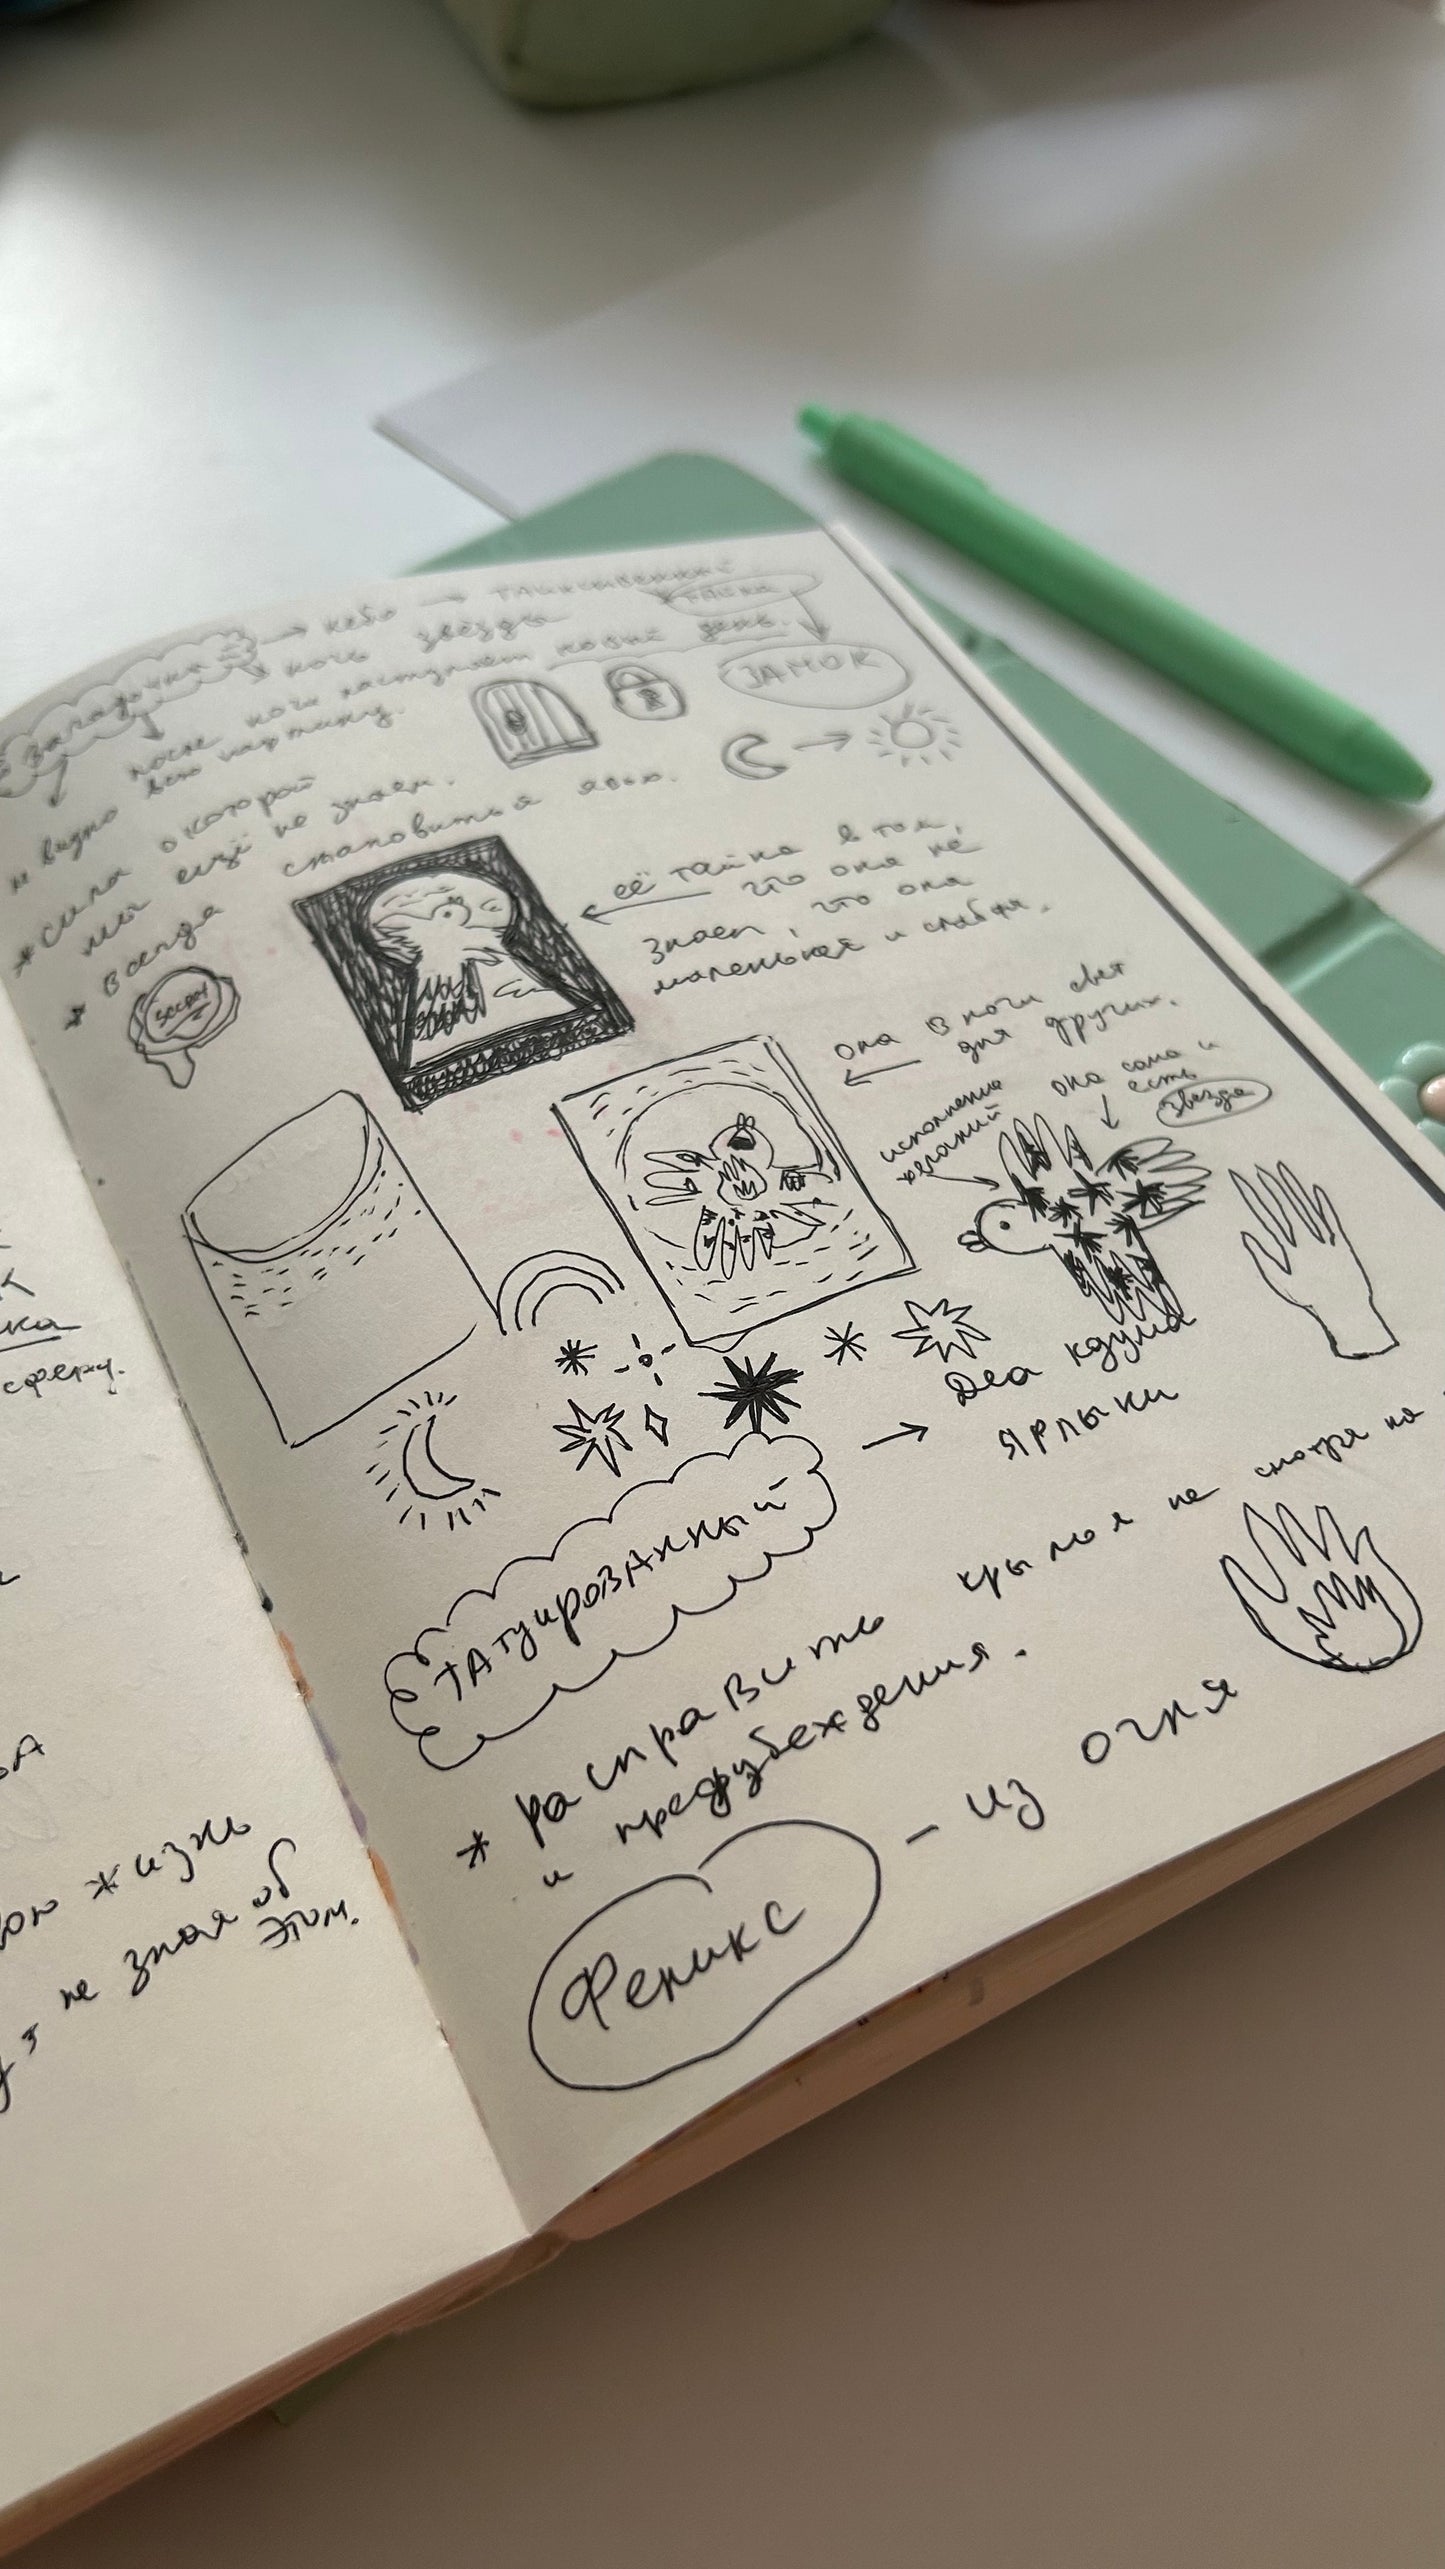 Загадочная → небо → таинственный
тайна
ночь звёзды
после ночи наступает новый день.
ЗАМОК
и видно всю картину.
*сила о которой
мы ещё не знаем.
* всегда становиться явью.
её тайна в том,
что она не
знает, что она
маленькая и слабая.
она в ночи свет
для других.
исполнение
желаний
она сама и
есть
звезда
Татуированный → Два
ярлыки
* расправить крылья не смотря на
и предубеждения.
Феникс - из огня
сферу.
жизнь
не зная об
этом.